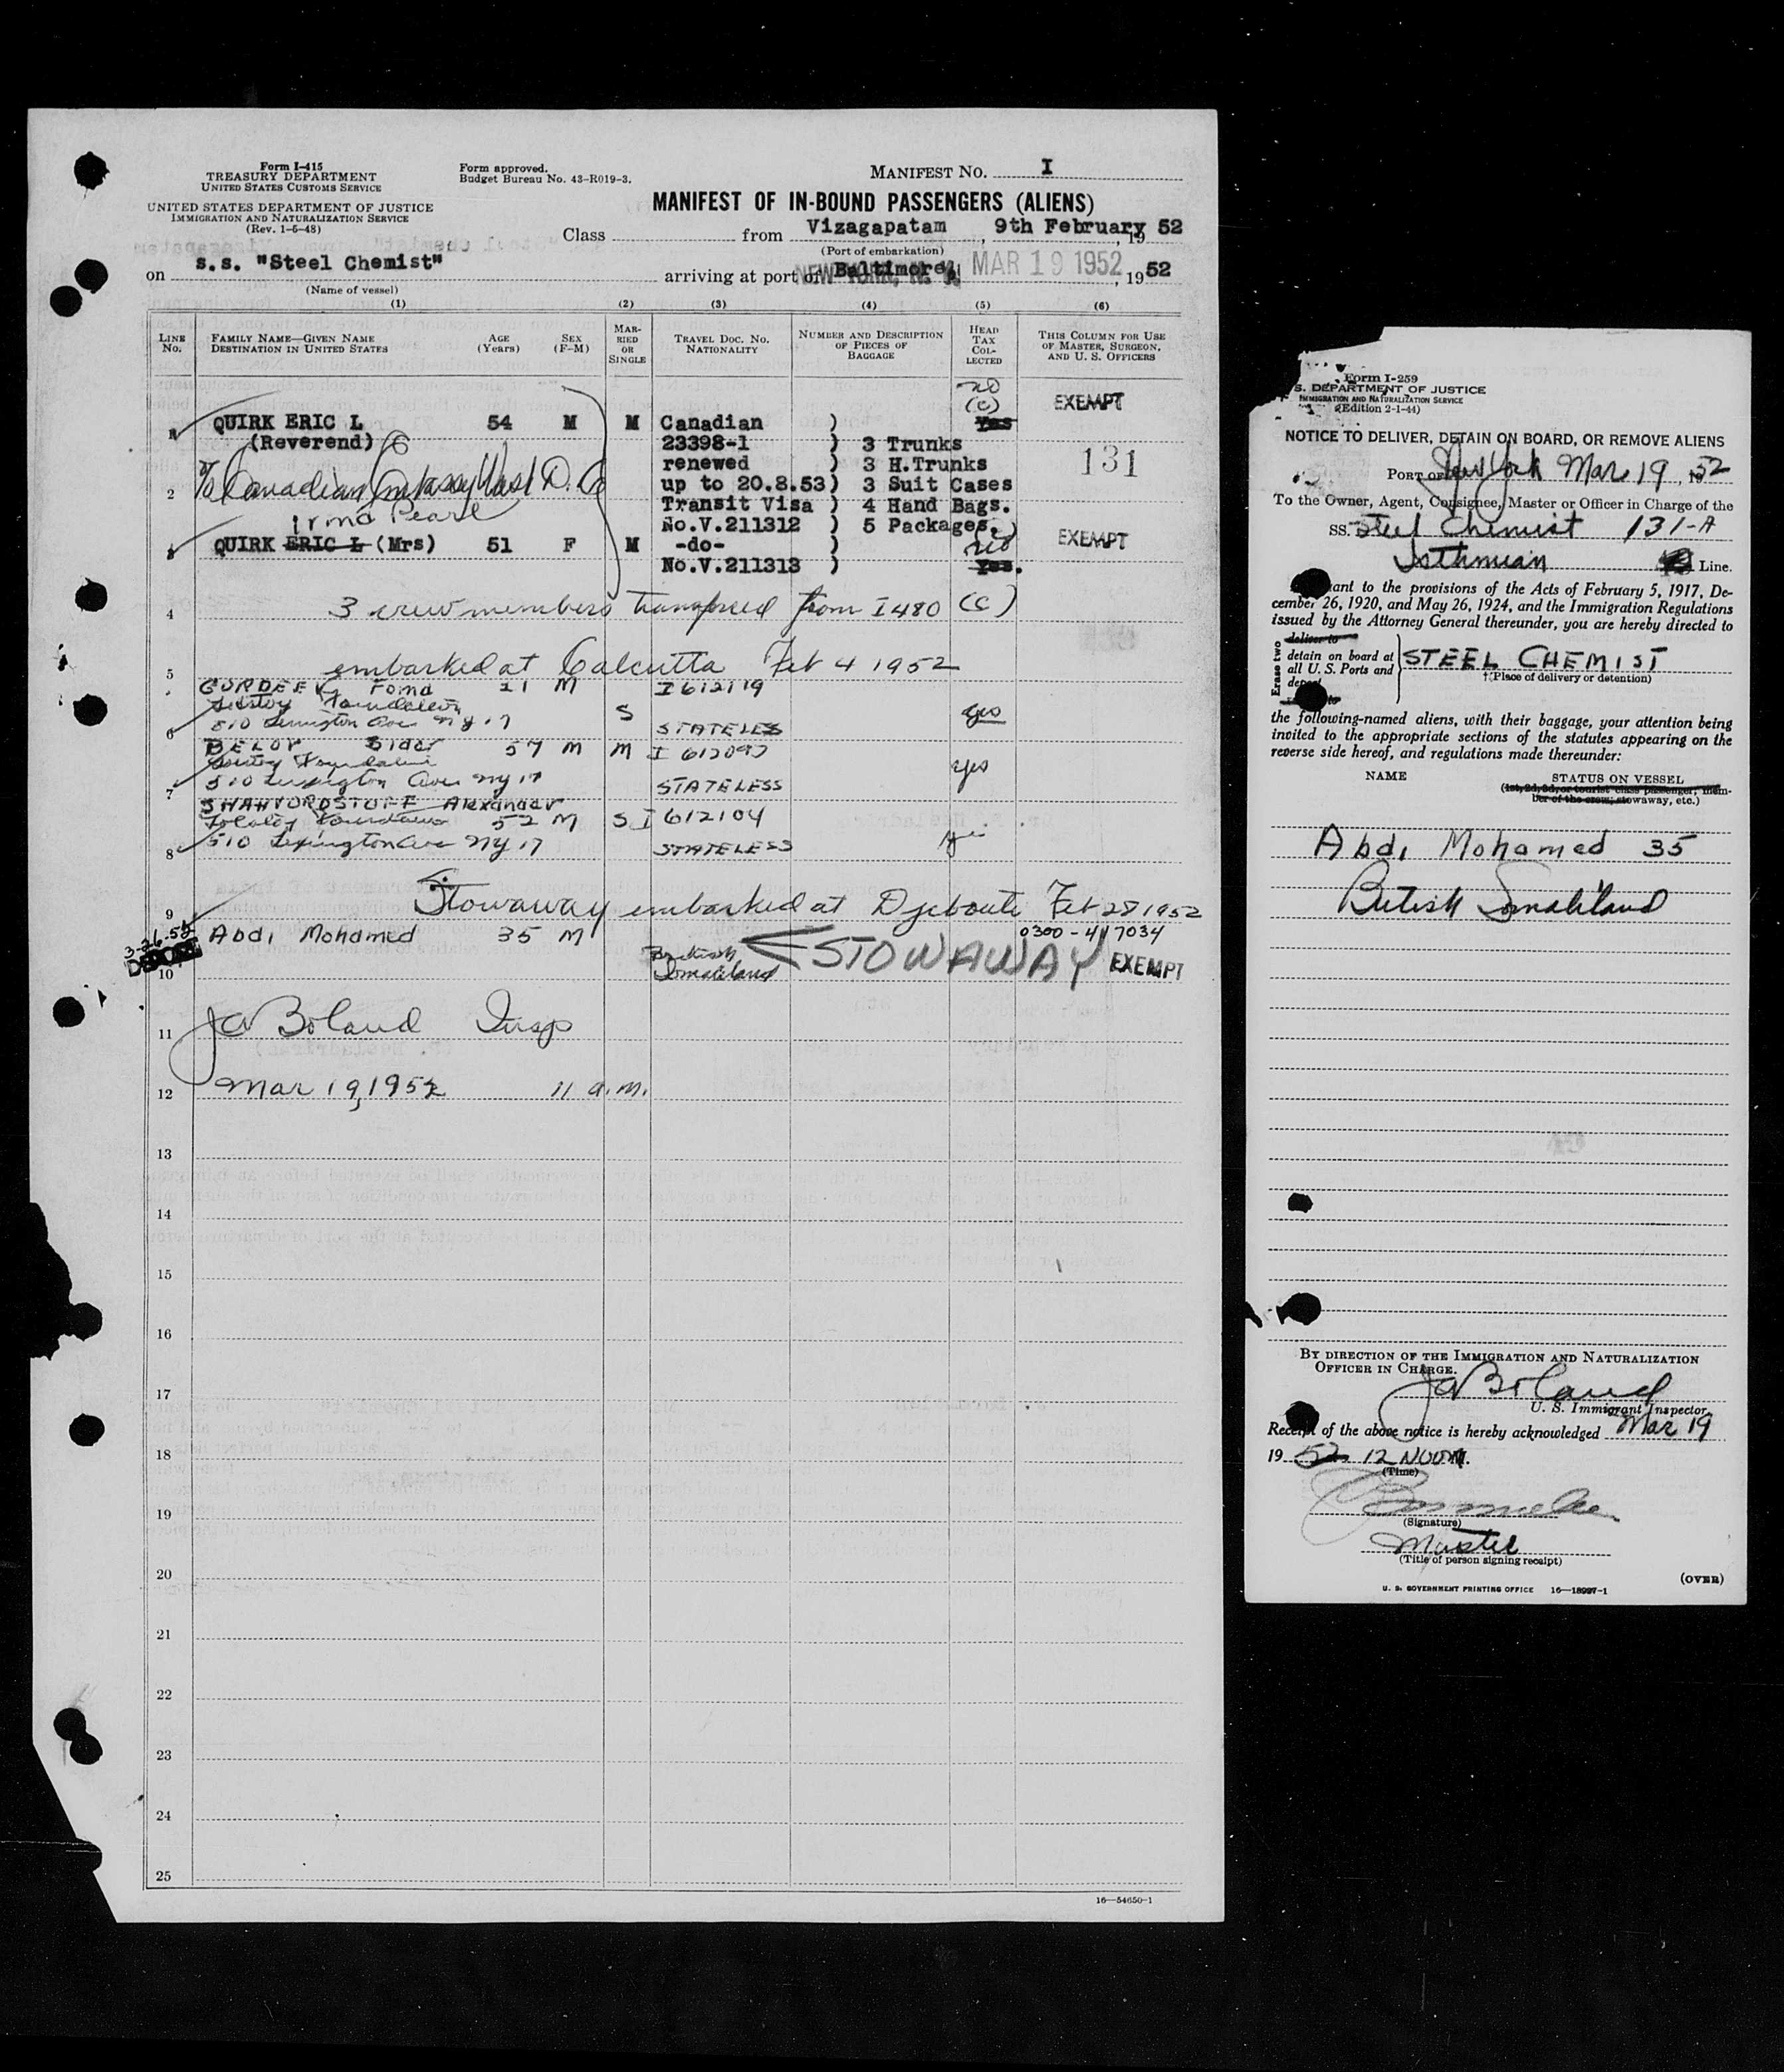 Form I-415
TREASURY DEPARTMENT
UNITED STATES CUSTOMS SERVICE
UNITED STATES DEPARTMENT OF JUSTICE
IMMIGRATION AND NATURALIZATION SERVICE
(Rev. 1-6-48)
Form approved.
Budget Bureau No. 43-R019-3.
MANIFEST NO. I
MANIFEST OF IN-BOUND PASSENGERS (ALIENS)
Class from Vizagapatam, 9th February, 1952
(Port of embarkation)
on s.s. "Steel Chemist" arriving at port of Baltimore, NEW YORK, N. Y. MAR 19 1952, 1952
(Name of vessel)
(1) (2) (3) (4) (5) (6)
LINE No. FAMILY NAME—GIVEN NAME DESTINATION IN UNITED STATES AGE (Years) SEX (F-M) MARRIED OR SINGLE TRAVEL DOC. NO. NATIONALITY NUMBER AND DESCRIPTION OF PIECES OF BAGGAGE HEAD TAX COLLECTED THIS COLUMN FOR USE OF MASTER, SURGEON, AND U. S. OFFICERS
no
(c) EXEMPT
1 QUIRK ERIC L 54 M M Canadian ) Yes
(Reverend) 23398-1 ) 3 Trunks 131
renewed ) 3 H.Trunks
2 c/o Canadian Embassy Wash D.C. up to 20.8.53) 3 Suit Cases
Irma Pearl Transit Visa ) 4 Hand Bags.
No.V.211312 ) 5 Packages. (c)
3 QUIRK ERIC L (Mrs) 51 F M -do- ) no EXEMPT
No.V.211313 ) Yes.
4 3 crew members transferred from I 480 (c)
5 embarked at Calcutta Feb 4 1952
GORDEEV, Foma 21 M I 612119
Tolstoy Foundation S yes
6 510 Lexington Ave NY 17 STATELESS
BELOV Sidor 57 M M I 612097
Tolstoy Foundation yes
7 510 Lexington Ave NY 17 STATELESS
SHAHVORDSTOFF Alexander
Tolstoy Foundation 52 M S I 612104
8 510 Lexington Ave NY 17 STATELESS yes
9 Stowaway embarked at Djeboute Feb 28 1952
3-26-52 Abdi Mohamed 35 M 0300-417034
DEPORT
10 British Somaliland STOWAWAY EXEMPT
11 JA Boland Insp
12 Mar 19, 1952 11 a.m.
13
14
15
16
17
18
19
20
21
22
23
24
25
16—54650-1
Form I-259
S. DEPARTMENT OF JUSTICE
IMMIGRATION AND NATURALIZATION SERVICE
(Edition 2-1-44)
NOTICE TO DELIVER, DETAIN ON BOARD, OR REMOVE ALIENS
PORT OF New York Mar 19, 1952
To the Owner, Agent, Consignee, Master or Officer in Charge of the
SS. Steel Chemist 131-A
Isthmian Line.
ant to the provisions of the Acts of February 5, 1917, De-
cember 26, 1920, and May 26, 1924, and the Immigration Regulations
issued by the Attorney General thereunder, you are hereby directed to
Erase two
deliver to
detain on board at
all U. S. Ports and
deport
STEEL CHEMIST
(Place of delivery or detention)
the following-named aliens, with their baggage, your attention being
invited to the appropriate sections of the statutes appearing on the
reverse side hereof, and regulations made thereunder:
NAME STATUS ON VESSEL
(1st, 2d, 3d, or tourist class passenger, mem-
ber of the crew, stowaway, etc.)
Abdi Mohamed 35
British Somaliland
BY DIRECTION OF THE IMMIGRATION AND NATURALIZATION
OFFICER IN CHARGE.
JA Boland
U. S. Immigrant Inspector.
Receipt of the above notice is hereby acknowledged Mar 19
1952 12 NOON M.
(Time)
(Signature)
Master
(Title of person signing receipt)
(OVER)
U. S. GOVERNMENT PRINTING OFFICE 16—18997-1